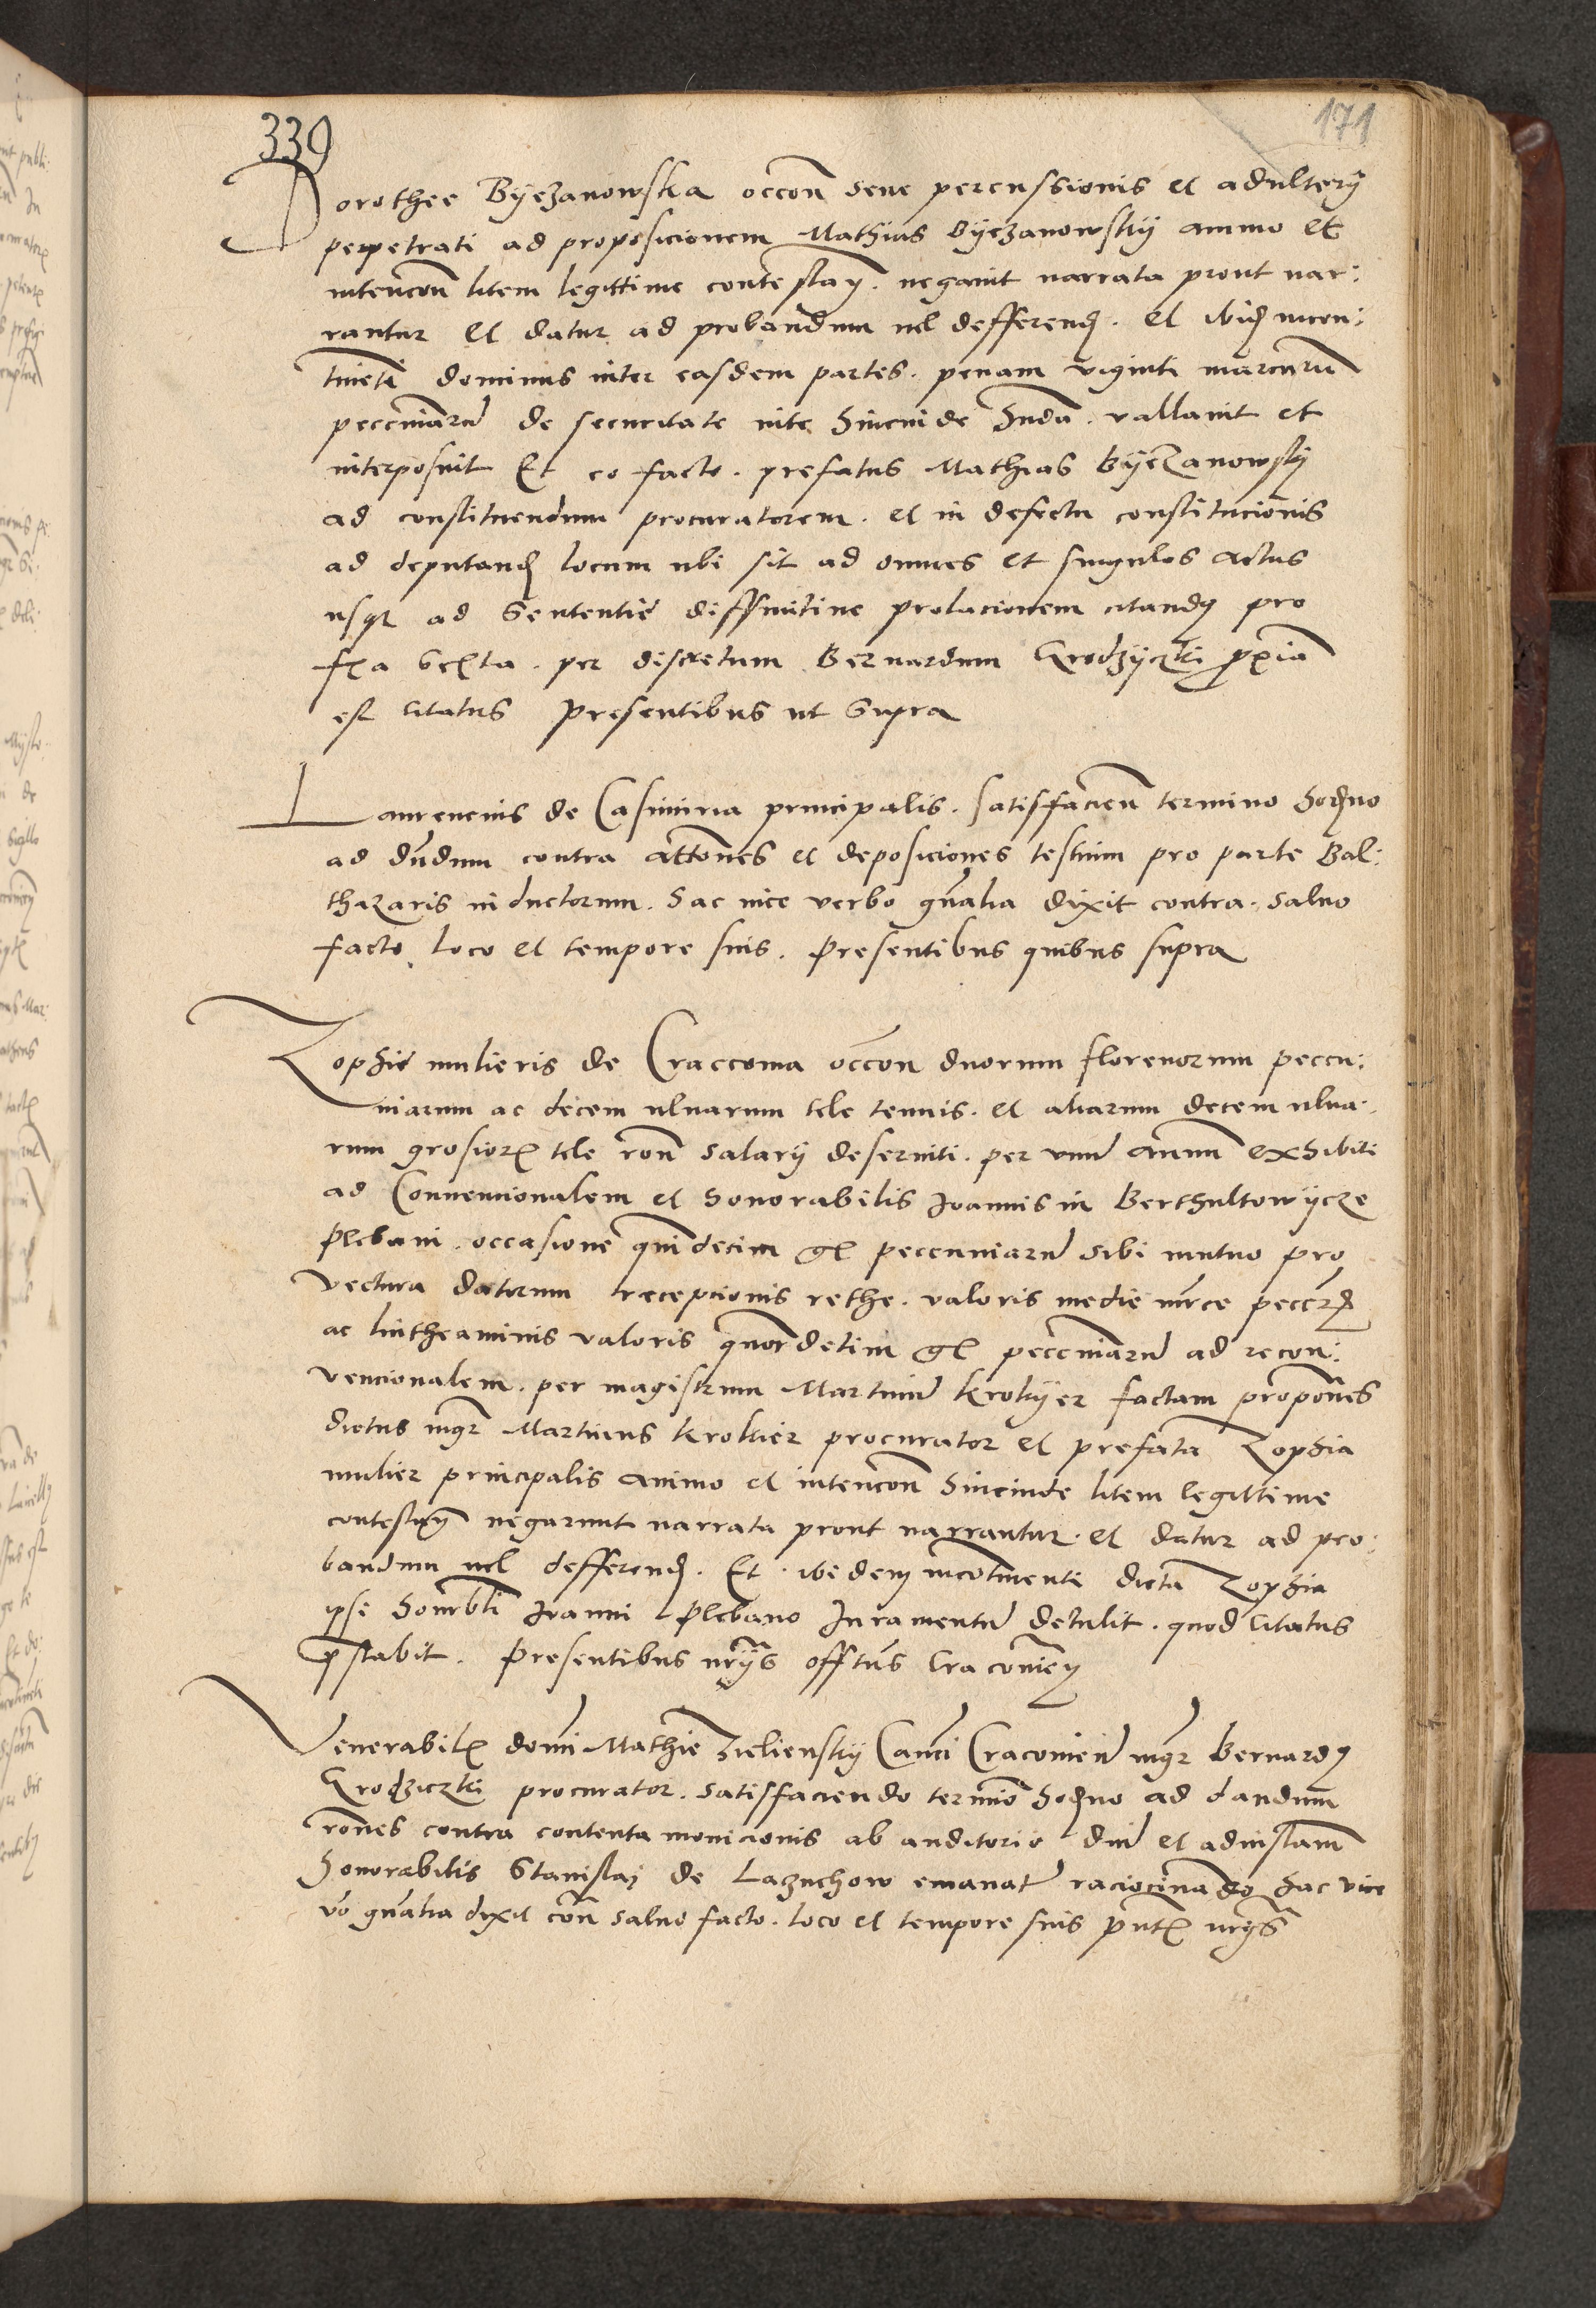 339
171
Dorothee Byezanowska occon seue percussionis et adultery
perpetrati ad proposicionem Mathias Byezanowsky animo et
intencon litem legittime contestan. negauit narrata prout nar:
rantur et datur ad probandum uel defferend. et ibid incon:
tineti dominus inter easdem partes. penam viginti marcarum
peccuniaru de securitate vite hincinde hnda. vallauit et
interposuit Et eo facto. prefatus Mathias Byezanowsky
ad constituendum procuratorem. et in defectu constitucionis
ad deputand locum ubi sit ad omnes et singulos actus
usqz ad Sententie diffinitiue prolacionem citandus pro
fra Sexta. per discretum Bernardum Grodzyczki pxia
est citatus presentibus ut Supra
Laurencius de Casimiria principalis. satisfacien termino hodno
ad dndum contra attones et deposiciones testium pro parte Bal:
thazaris inductorum. hac vice verbo gnalia dixit contra. saluo
facto loco et tempore suis. Presentibus quibus supra
Zophie mulieris de Craccouia occon duorum florenorum peccu:
niarum ac decem ulnarum tele tenuis. et aliarum decem ulna:
rum grosior tele ron salary deseruiti. per unu annu exhibiti
ad Conuencionalem et honorabilis Joannis in Berthultowycze
Plebani. occasione quindecim gr peccuniaru sibi mutuo pro
vectura datorum recepcionis rethe. valoris medie mrce peccrz
ac lintheaminis valoris quor detim gr pecceniaru ad recon:
vencionalem. per magistrum Martinu Krokyer factam propones
dictus mgr Martinus Krokier procurator et prefata Zophia
mulier principalis animo et intencon hincinde litem legittime
contestan negarunt narrata prout narrantur. et datur ad pro:
bandum uel defferend. Et ibidem incontinenti dicta Zophia
ipsi honrbli Joanni Plebano Juramentu detulit. quod citatus
pstabit. Presentibus nrys offtus Cracouien
Venerabil domi Mathie Zieliensky Canci Cracouien mgr Bernardus
Grodziczki procurator. satisfaciendo termio hodno ad dandum
rones contra contenta monicionis ab auditorio dni et adinstam
honorabilis Stanislai de Lazuchow emanat raciocinando hac vice
vo gnalia dixit con saluo facto. loco et tempore suis pnt nrys